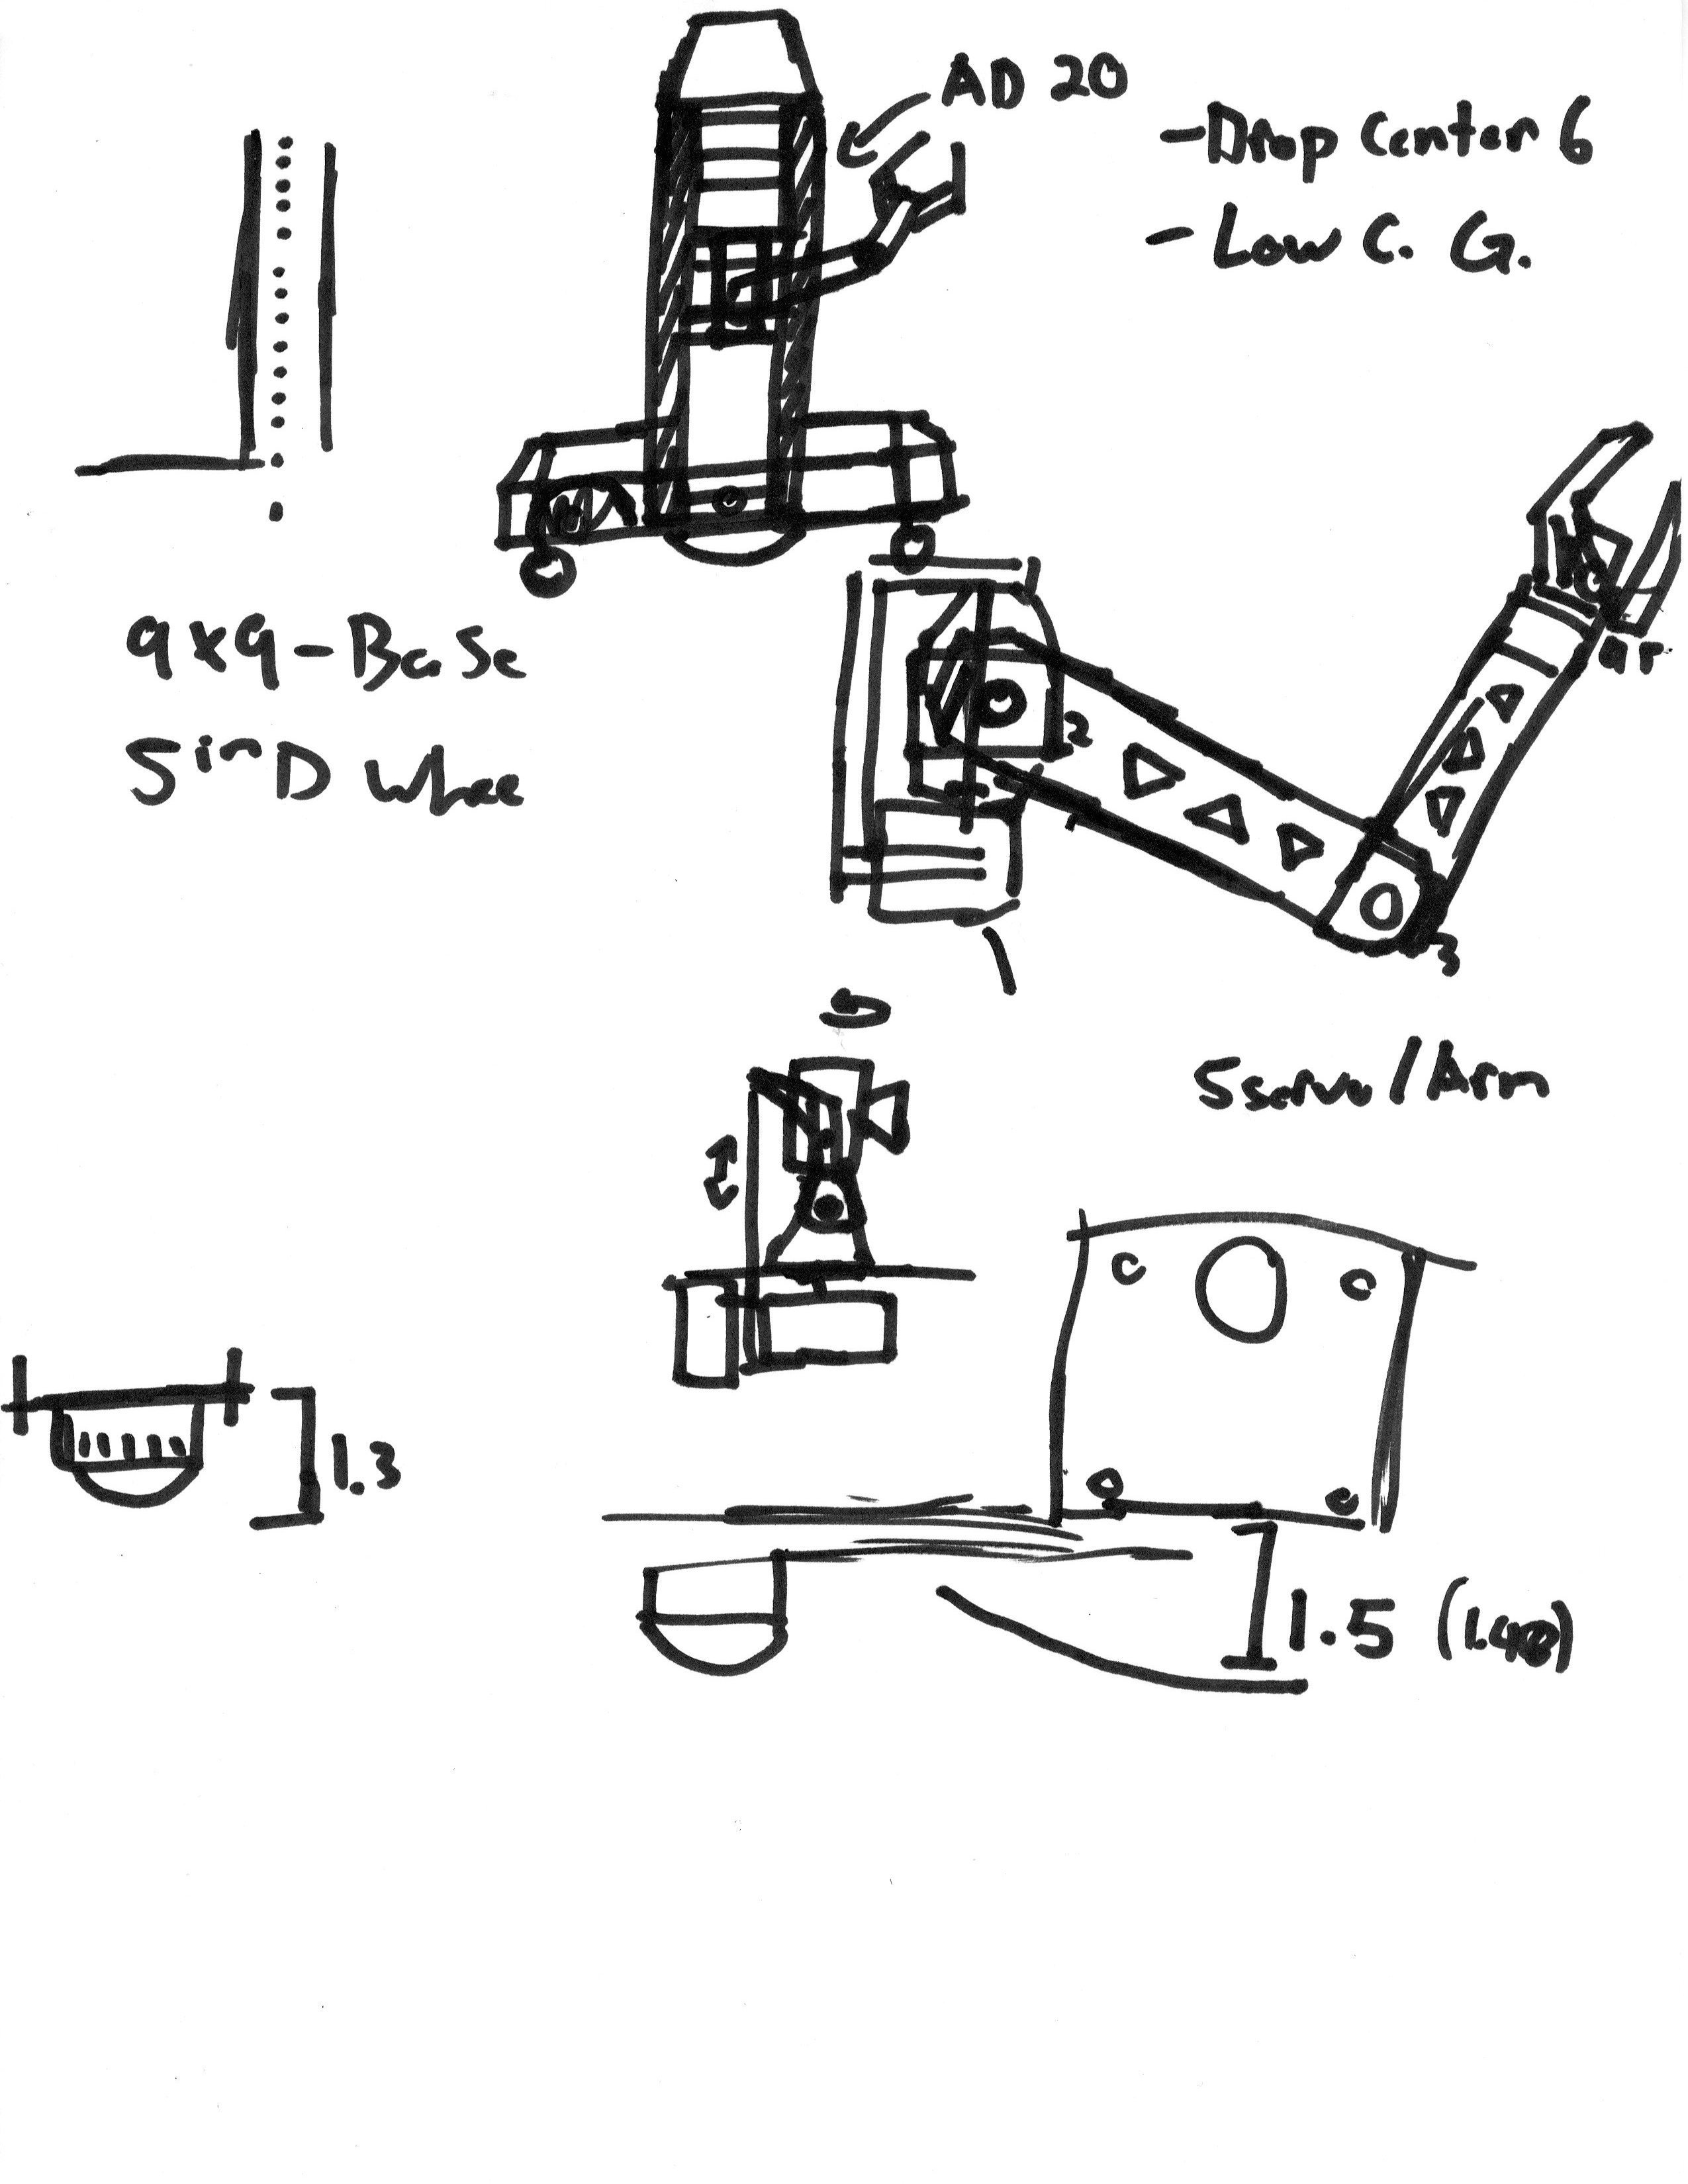 AD 20
- Drop Center 6
- Low C. G.
9x9 - Base
5 in D Whee
2
3
5 servo / Arm
1.3
1.5 (1.48)